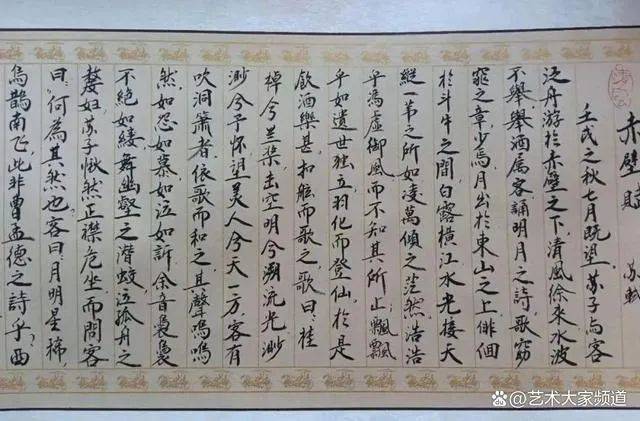 赤壁賦 苏軾
壬戌之秋七月既望苏子与客
泛舟游於赤壁之下清風徐来水波
不舉舉酒属客誦明月之詩歌窈
窕之章少焉月出於東山之上徘徊
於斗牛之間白露橫江水光接天
縱一苇之所如凌萬傾之茫然浩浩
乎為虛御風而不知其所止飄飄
乎如遺世独立羽化而登仙於是
飲酒樂甚扣舷而歌之歌曰:桂
棹兮兰桨击空明兮溯流光渺
渺兮予怀望美人兮天一方客有
吹洞簫者依歌而和之其聲嗚嗚
然如怨如慕如泣如訴余音裊裊
不絕如縷舞幽壑之潛蛟泣孤舟之
嫠妇苏子愀然正襟危坐而問客
曰:何為其然也客曰:月明星稀,
烏鵲南飞,此非曹孟德之詩乎,西
@艺术大家频道